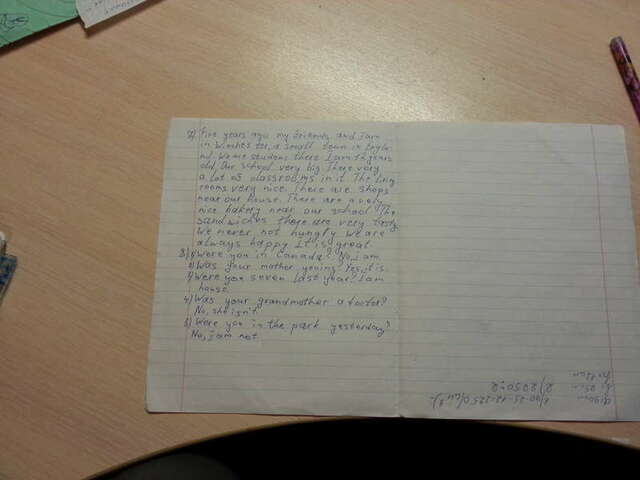 2) Five years ago my friends and I am
in Winchester, a small town in Engla
nd. We are students there. I am 14 years
old. Our school very big. There very
a lot of classrooms in it. The living
rooms very nice. There are shops
near our house. There are a very
nice bakery near our school. The
sandwiches there are very tasty.
We never not hungry. We are
always happy. It is great.
3) 1) Were you in Canada? Yo, I am.
2) Was your mother young? Yes, it is.
3) Were you seven last year? I am
house.
4) Was your grandmother a doctor?
No, she isn't.
5) Were you in the park yesterday?
No, I am not.
2) 2250:2